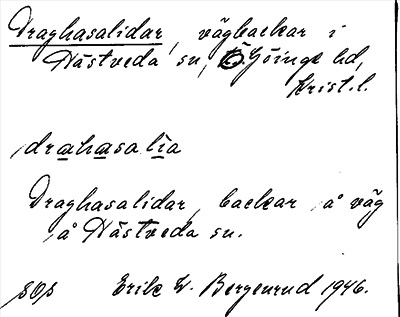 Draghasalidar, vägbackar i
Hästveda sn, Ö. Göinge hd,
Krist. l.
drahasalia
Draghasalidar, backar å väg
å Hästveda sn.
sOs Erik W. Bergenrud 1946.